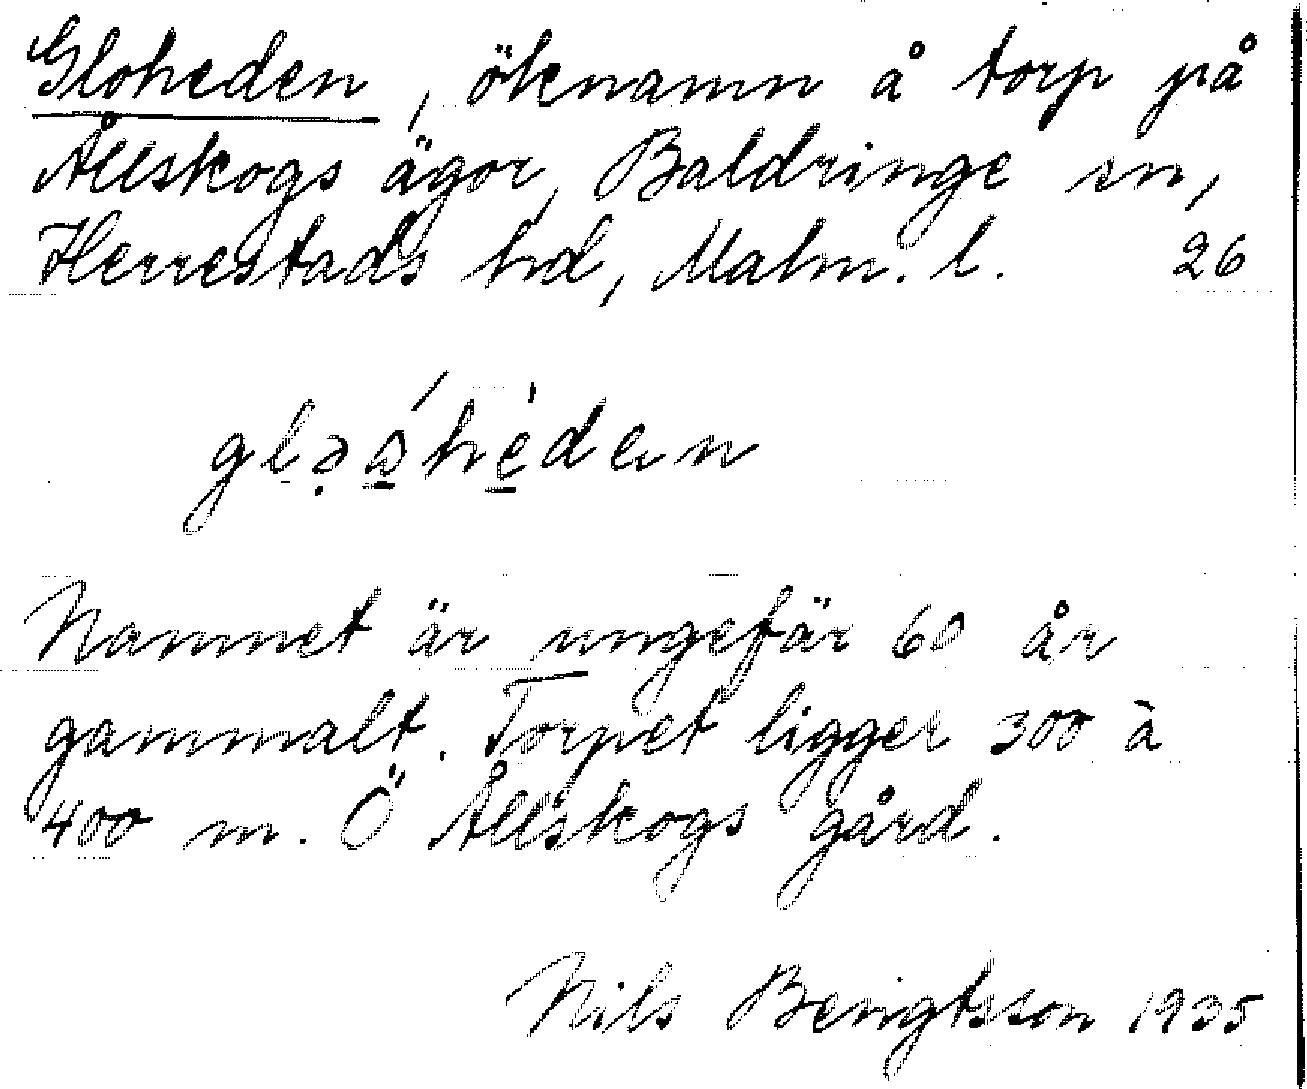 Gloheden, öknamn å torp på
Ållskogs ägor, Baldringe sn,
Herrestads hd, Malm. l. 26
Namnet är ungefär 60 år
gammalt. Torpet ligger 300 à
400 m. Ö Ållskogs gård.
Nils Bengtsson 1935